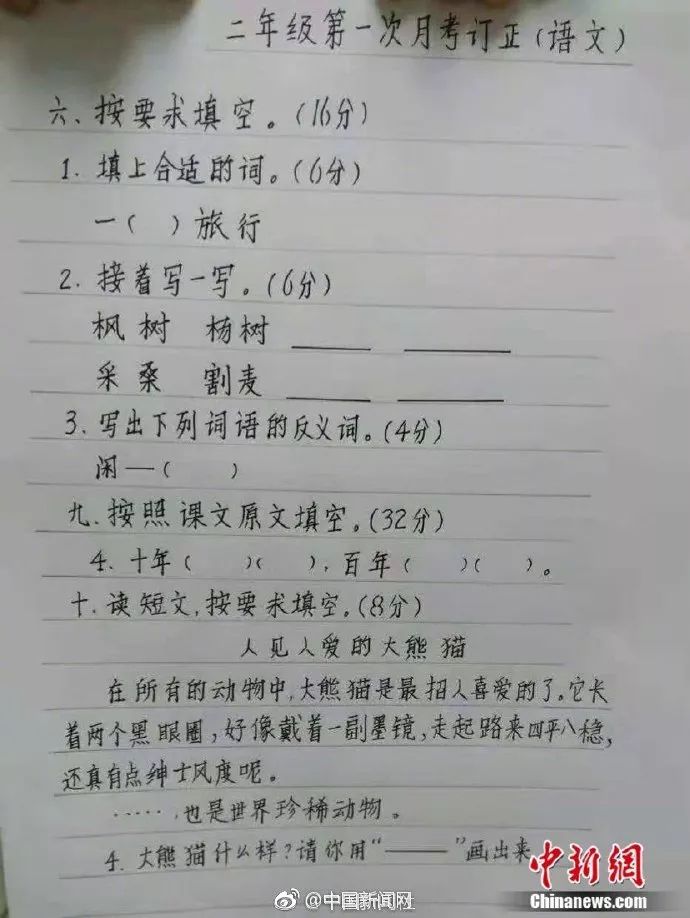 二年级第一次月考订正(语文)
六、按要求填空。(16分)
1. 填上合适的词。(6分)
一(  )旅行
2. 接着写一写。(6分)
枫树 杨树 ____ ____
采桑 割麦 ____ ____
3. 写出下列词语的反义词。(4分)
闲—(  )
九、按照课文原文填空。(32分)
4. 十年(  )(  ),百年(  )(  )。
十、读短文,按要求填空。(8分)
人见人爱的大熊猫
在所有的动物中,大熊猫是最招人喜爱的了。它长
着两个黑眼圈,好像戴着一副墨镜,走起路来四平八稳,
还真有点绅士风度呢。
······,也是世界珍稀动物。
4. 大熊猫什么样?请你用“——”画出来
中新网
Chinanews.com
@中国新闻网